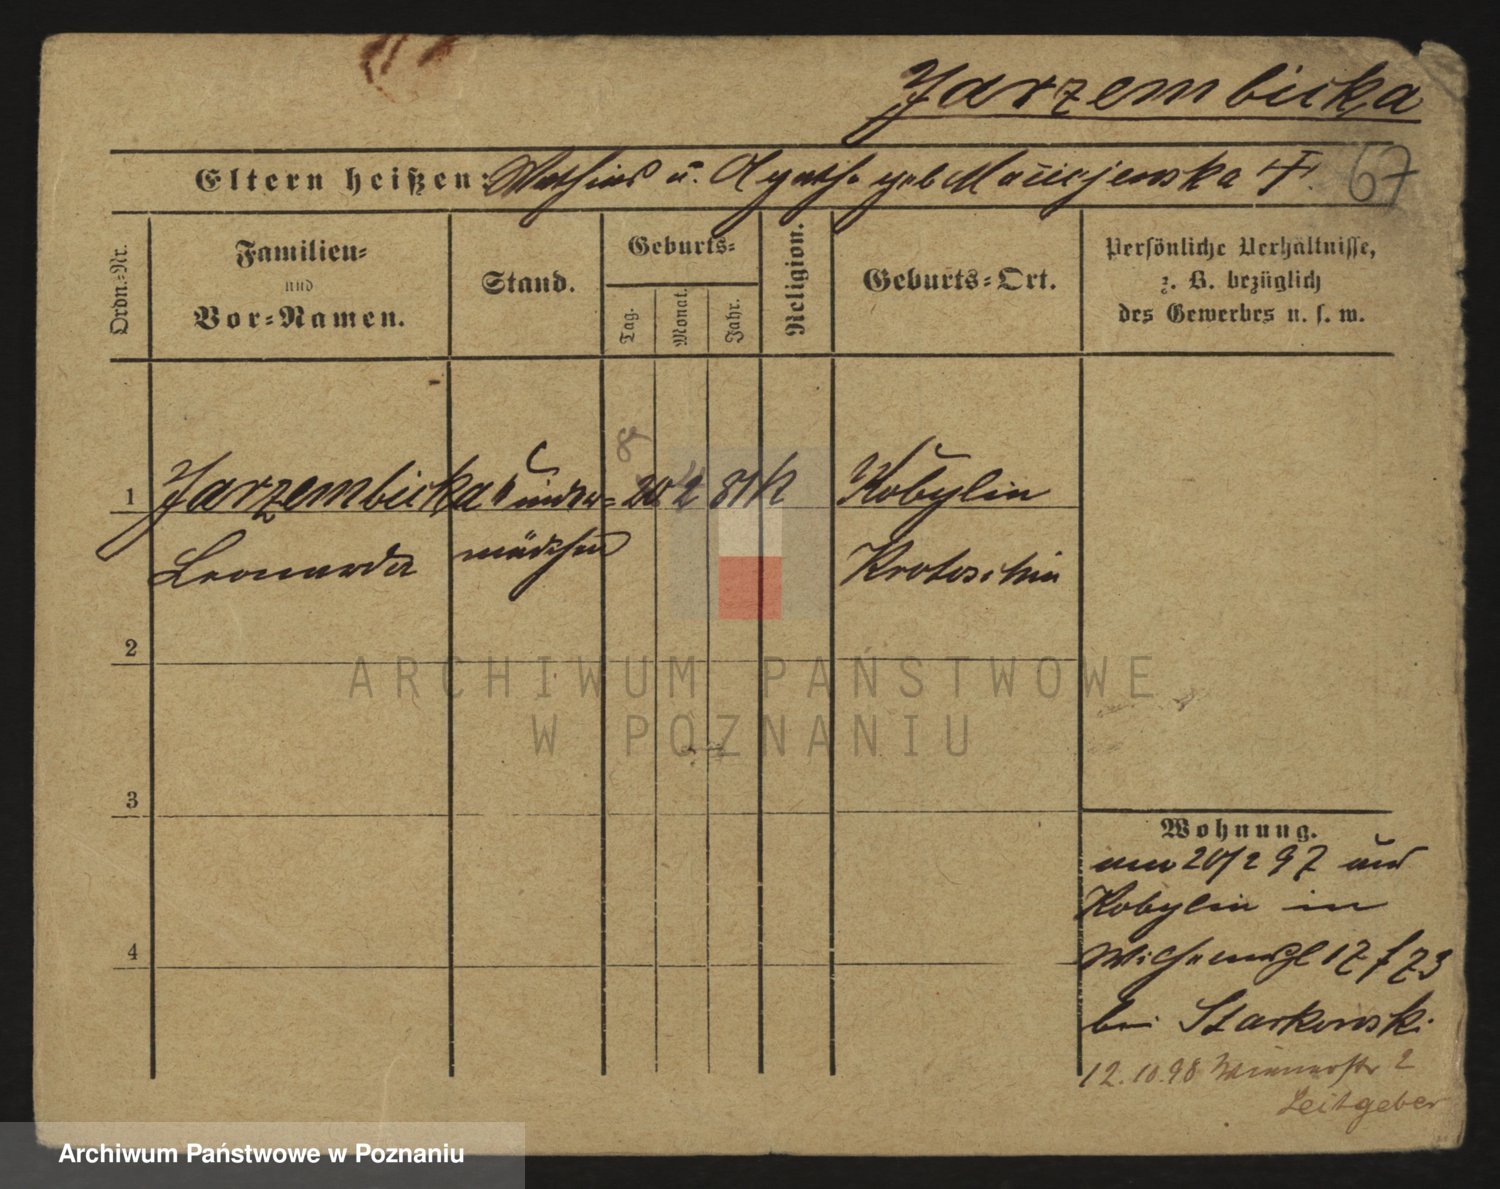 Jarzembicka
Eltern heißen: Mathias u. Agathe geb Maciejewska †.
67
Ordn.-Nr.
Familien-
und
Vor-Namen.
Stand.
Geburts-
Tag.
Monat.
Jahr.
Religion.
Geburts-Ort.
Persönliche Verhältnisse,
z. B. bezüglich
des Gewerbes u. s. w.
8
1 Jarzembicka Kinder- 20 2 81 k Kobylin
Leonarda mädchen Krotoschin
2
3
4
Wohnung.
am 20/2 97 aus
Kobylin in
17 f 73
bei Starkowski
12.10.98 Wienerstr 2
Leitgeber
ARCHIWUM PAŃSTWOWE
W POZNANIU
Archiwum Państwowe w Poznaniu